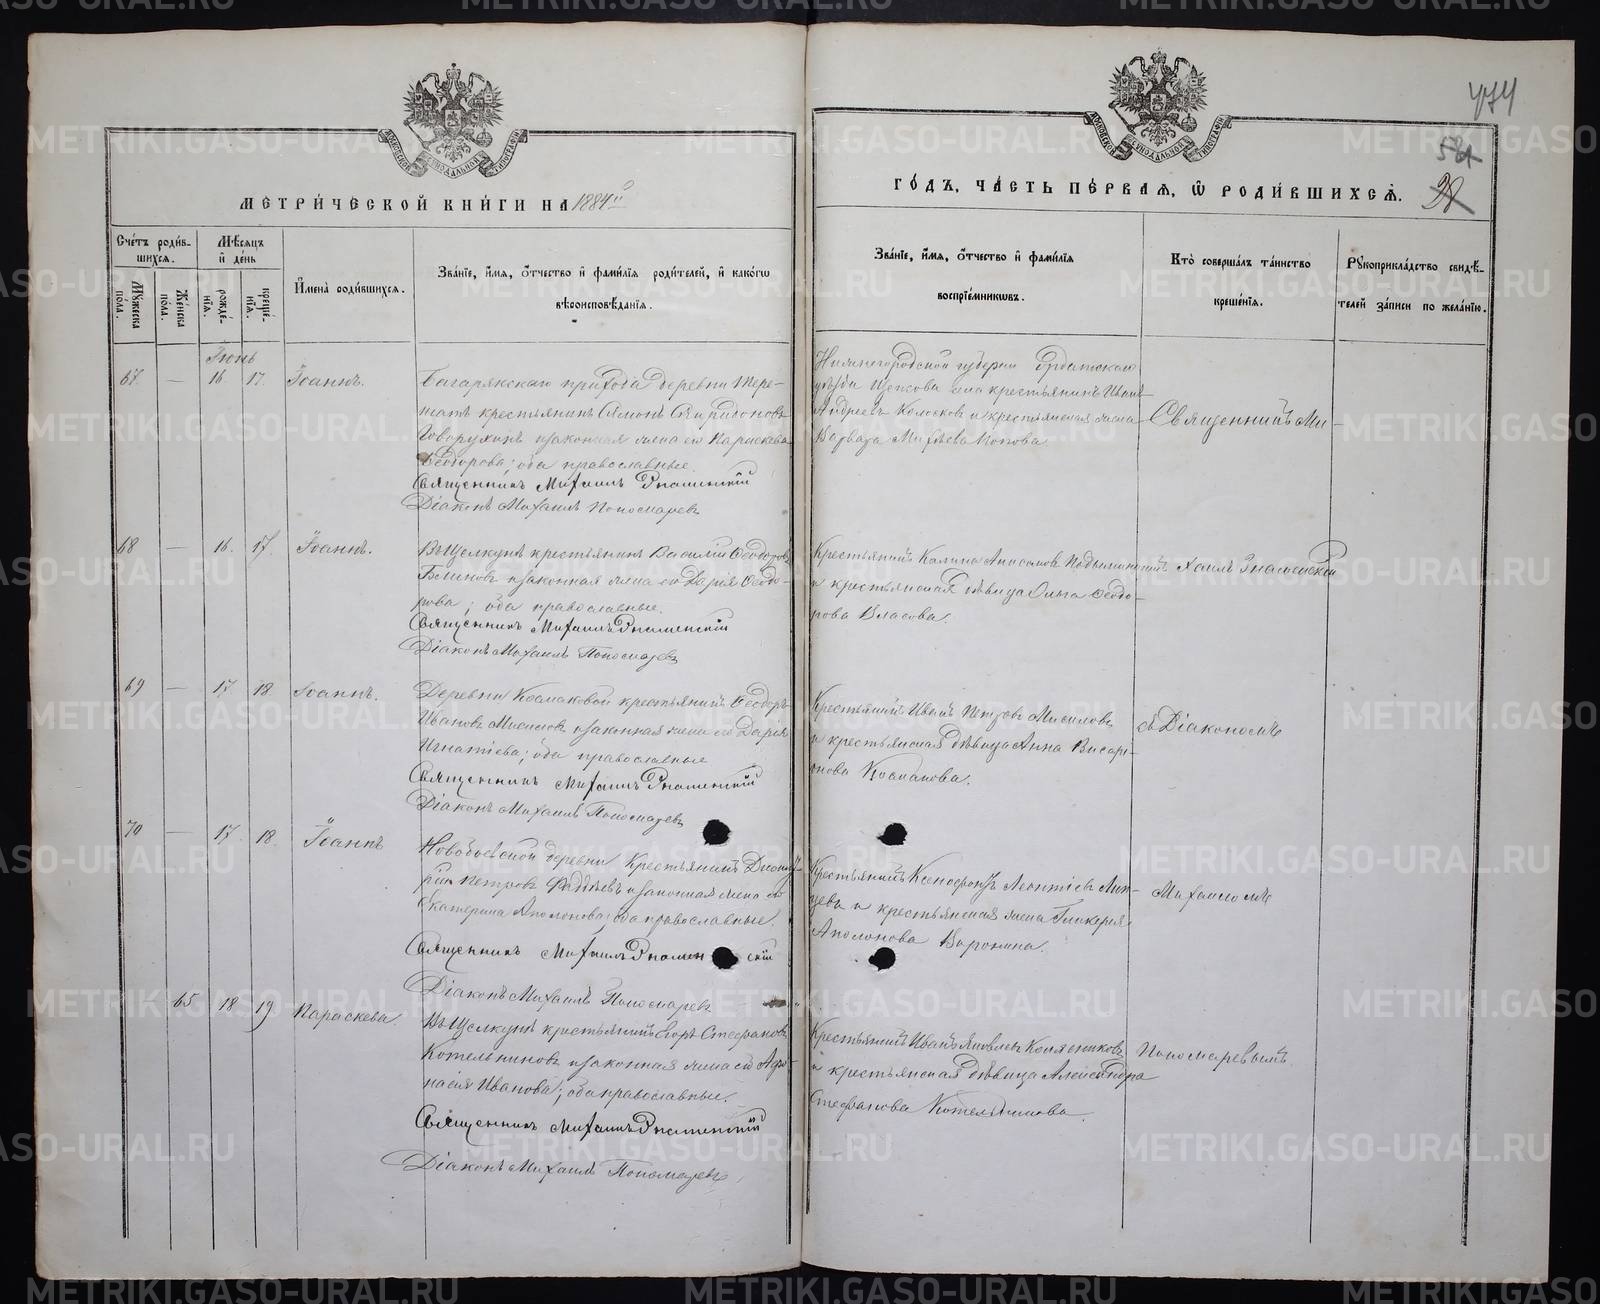 474
521
28
МЕТРИ́ЧЕСКОЙ КНИ́ГИ НА 1884й
ГО́ДЪ, ЧА́СТЬ ПЕ́РВАЯ, Ѽ РОДИ́ВШИХСѦ.
Сче́тъ роди́в-
шихся.
Мѣ́сяцъ
и҆ де́нь
Му́жеска по́ла.
Же́нска по́ла.
рожде́-нїя.
креще́-нїя.
И҆мена̀ роди́вшихся.
Зва́нїе, и҆́мя, ѻ҆́тчество и҆ фами́лїя роди́телей, и҆ како́гѡ
вѣроисповѣ́данїя.
Зва́нїе, и҆́мя, ѻ҆́тчество и҆ фами́лїя
воспрїе́мникѡвъ.
Кто̀ соверша́лъ та́инство
креще́нїя.
Рꙋкоприкла́дство свидѣ́-
телей за́писи по жела́нїю.
Іюнь
67. — 16. 17. Іоаннъ.
Багарякскаго прихода деревни
крестьянинъ Симонъ Спиридоновъ
Говорухинъ и законная жена его Параскева
Ѳеодорова; оба православные.
Священникъ Михаилъ Знаменскій
Діаконъ Михаилъ Пономаревъ
Нижегородской губерніи Ардатовскаго
уѣзда села крестьянинъ Иванъ
Андреевъ Колосковъ и крестьянская жена
Варвара Попова.
Священникъ Ми-
68 — 16. 17. Іоаннъ.
Въ Щелкунѣ крестьянинъ Василій Ѳеодоровъ
Блиновъ и законная жена его Дарія Ѳеодо-
рова; оба православные.
Священникъ Михаилъ Знаменскій
Діаконъ Михаилъ Пономаревъ
Крестьянинъ Калина Анисимовъ
и крестьянская дѣвица Ольга Ѳеодо-
рова Власова.
хаилъ Знаменскій
69 — 17 18. Іоаннъ.
Деревни Космаковой крестьянинъ Ѳеодоръ
Ивановъ и законная жена его Дарія
Игнатіева; оба православные
Священникъ Михаилъ Знаменскій
Діаконъ Михаилъ Пономаревъ
Крестьянинъ Иванъ Петровъ
и крестьянская дѣвица Анна Висарі-
онова Космакова.
съ Діакономъ
70 — 17. 18. Іоаннъ
деревни Крестьянинъ Димит-
рій Петровъ Фаддѣевъ и законная жена его
Екатерина Аполонова; оба православные.
Священникъ Михаилъ Знаменскій
Діаконъ Михаилъ Пономаревъ
Крестьянинъ Ксенофонтъ Леонтіевъ
и крестьянская жена Гликерія
Аполонова Воронина.
Михаиломъ
65 18 19 Параскева.
Въ Щелкунѣ крестьянинъ Егоръ Стефановъ
Котельниковъ и законная жена его Аѳа-
насія Иванова; оба православные.
Священникъ Михаилъ Знаменскій
Діаконъ Михаилъ Пономаревъ
Крестьянинъ Иванъ Яковлевъ
и крестьянская дѣвица Александра
Стефанова Котельникова.
Пономаревымъ.
METRIKI.GASO-URAL.RU